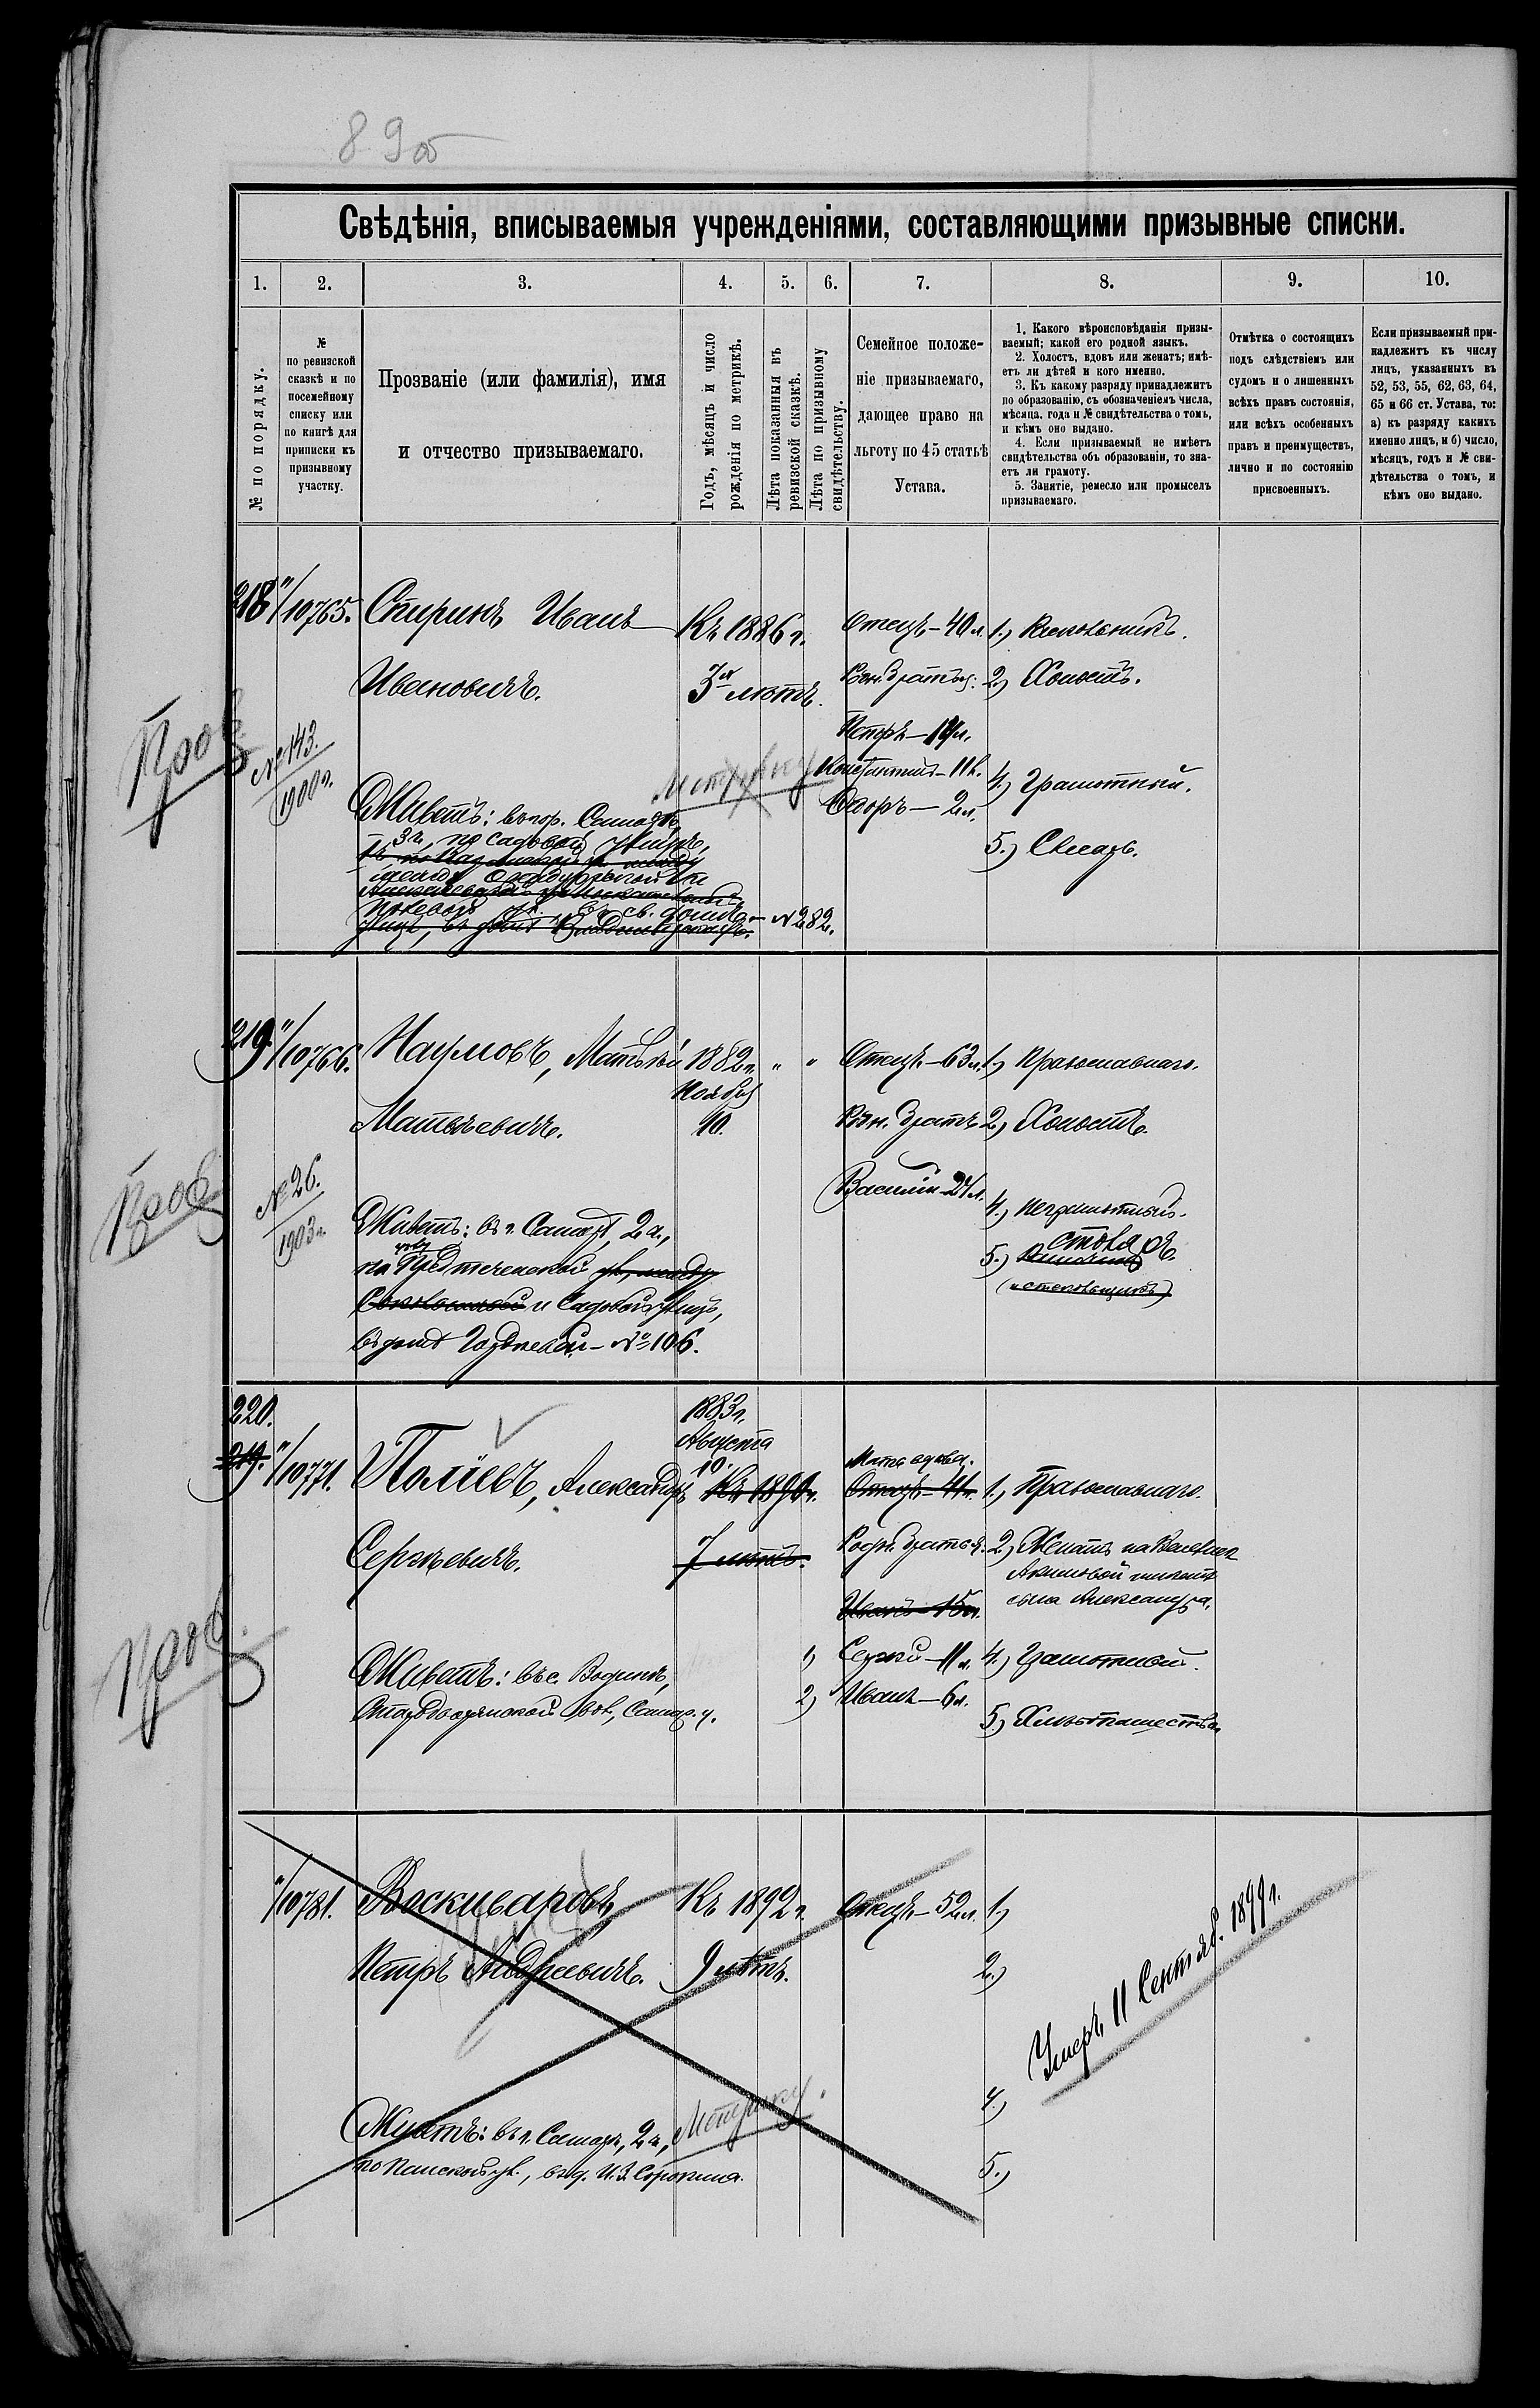 89об
Свѣдѣнія, вписываемыя учрежденіями, составляющими призывные списки.
1. 2. 3. 4. 5. 6. 7. 8. 9. 10.
№ по порядку.
№
по ревизской
сказкѣ и по
посемейному
списку или
по книгѣ для
приписки къ
призывному
участку.
Прозваніе (или фамилія), имя
и отчество призываемаго.
Годъ, мѣсяцъ и число
рожденія по метрикѣ.
Лѣта показанныя въ
ревизской сказкѣ.
Лѣта по призывному
свидѣтельству.
Семейное положе-
ніе призываемаго,
дающее право на
льготу по 45 статьѣ
Устава.
1. Какого вѣроисповѣданія призы-
ваемый; какой его родной языкъ.
2. Холостъ, вдовъ или женатъ; имѣ-
етъ ли дѣтей и кого именно.
3. Къ какому разряду принадлежитъ
по образованію, съ обозначеніемъ числа,
мѣсяца, года и № свидѣтельства о томъ,
и кѣмъ оно выдано.
4. Если призываемый не имѣетъ
свидѣтельства объ образованіи, то зна-
етъ ли грамоту.
5. Занятіе, ремесло или промыселъ
призываемаго.
Отмѣтка о состоящихъ
подъ слѣдствіемъ или
судомъ и о лишенныхъ
всѣхъ правъ состоянія,
или всѣхъ особенныхъ
правъ и преимуществъ,
лично и по состоянію
присвоенныхъ.
Если призываемый при-
надлежитъ къ числу
лицъ, указанныхъ въ
52, 53, 55, 62, 63, 64,
65 и 66 ст. Устава, то:
а) къ разряду какихъ
именно лицъ, и б) число,
мѣсяцъ, годъ и № сви-
дѣтельства о томъ, и
кѣмъ оно выдано.
218 "/10765. Спиринъ Иванъ
Ивановичъ.
Къ 1886 г.
3 лѣтъ.
Отецъ - 40 л.
Род. братья:
Петръ - 14 л.
Константинъ - 11 л.
Ѳедоръ - 2 л.
1.)
2.) Холостъ.
4.) Грамотный.
5.) Слесарь.
№ 143.
1900 г.
Метрику
Живетъ: въ гор. Самарѣ,
3 ч., по Садовой улицѣ,
св. домъ - № 282.
219. "/10766. Наумовъ, Матвѣй
Матвѣевичъ.
1882 г. " "
Ноября
10.
Отецъ - 63 л.
Род. братъ
Василій - 21 л.
1.) Православнаго.
2.) Холостъ.
4.) Неграмотный.
5.) столяръ
№ 26.
1903 г.
Живетъ: въ г. Самарѣ, 2 ч.,
по Предтеченской
и Садовой улицъ,
въ домѣ - № 106.
220.
219. "/10771. Поліевъ, Александръ
Сергѣевичъ.
1883 г.
Августа
10.
Къ 1890 г.
7 лѣтъ.
Мать вдова.
Отецъ - 41 л.
Родн. братья:
Иванъ - 15 л.
1) Сергѣй - 11 л.
2) Иванъ - 6 л.
1.) Православнаго.
2.) Женатъ на
Акимовой имѣетъ
сына Александра.
4.) Грамотный.
5.) Хлѣбопашество
Живетъ: въ с. Водинѣ,
Стар. Дворянской вол., Самар. у.
"/10781.
Петръ Андреевичъ.
Къ 1892 г.
9 лѣтъ.
Отецъ - 52 л.
1.)
2.)
4.)
5.)
Умеръ 11 Сентяб. 1899 г.
Метрику.
Живетъ: въ г. Самарѣ, 2 ч.,
по Панской ул., въ д. И. З. Сорокина.